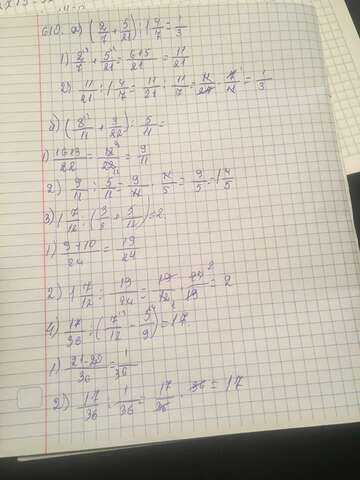 610. а) (2/7 + 5/21) : 1 4/7 = 1/3
1) 2/7 + 5/21 = 6+5/21 = 11/21
2) 11/21 : 1 4/7 = 11/21 : 11/7 = 11/21 · 7/11 = 1/3
б) (8/11 + 3/22) : 5/11 =
1) 16+3/22 = 18/22 = 9/11
2) 9/11 : 5/11 = 9/11 · 11/5 = 9/5 = 1 4/5
3) 1 7/12 : (3/8 + 5/12) = 2
1) 9+10/24 = 19/24
2) 1 7/12 : 19/24 = 19/12 · 24/19 = 2
4) 17/36 : (7/12 - 5/9) = 17
1) 21-20/36 = 1/36
2) 17/36 : 1/36 = 17/36 · 36 = 17